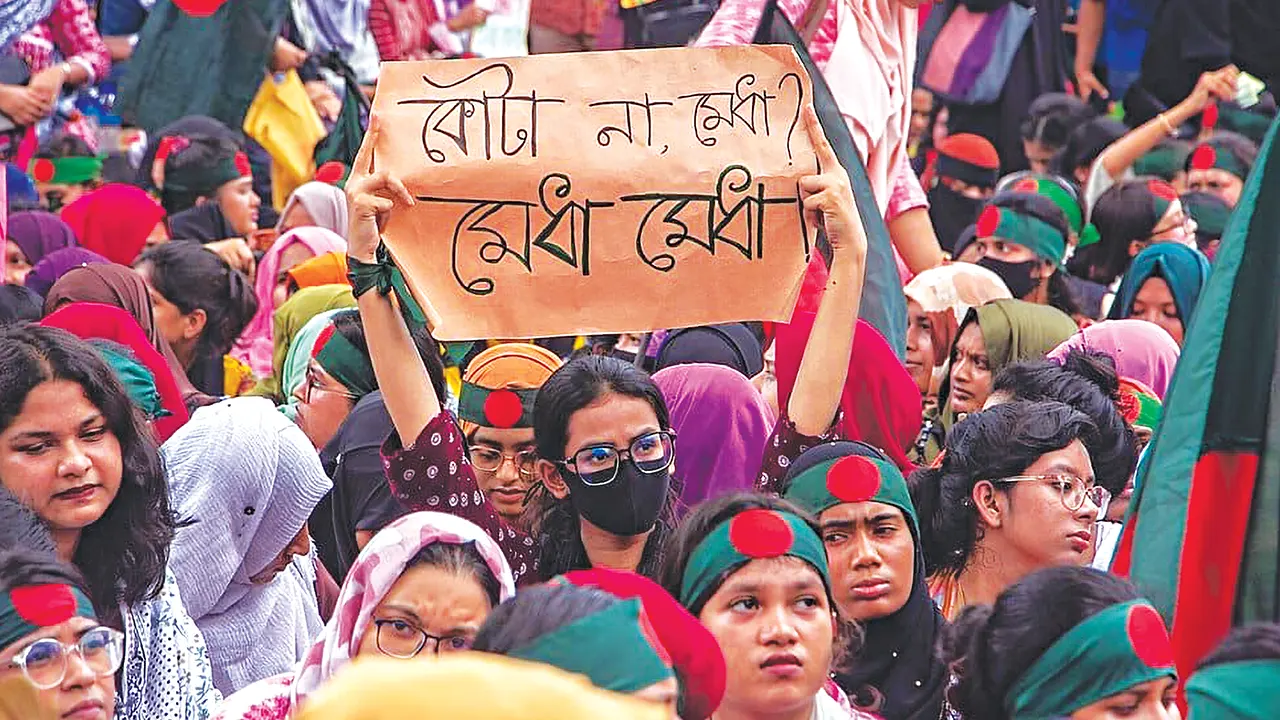 কৌটা না, মেধা?
মেধা মেধা।